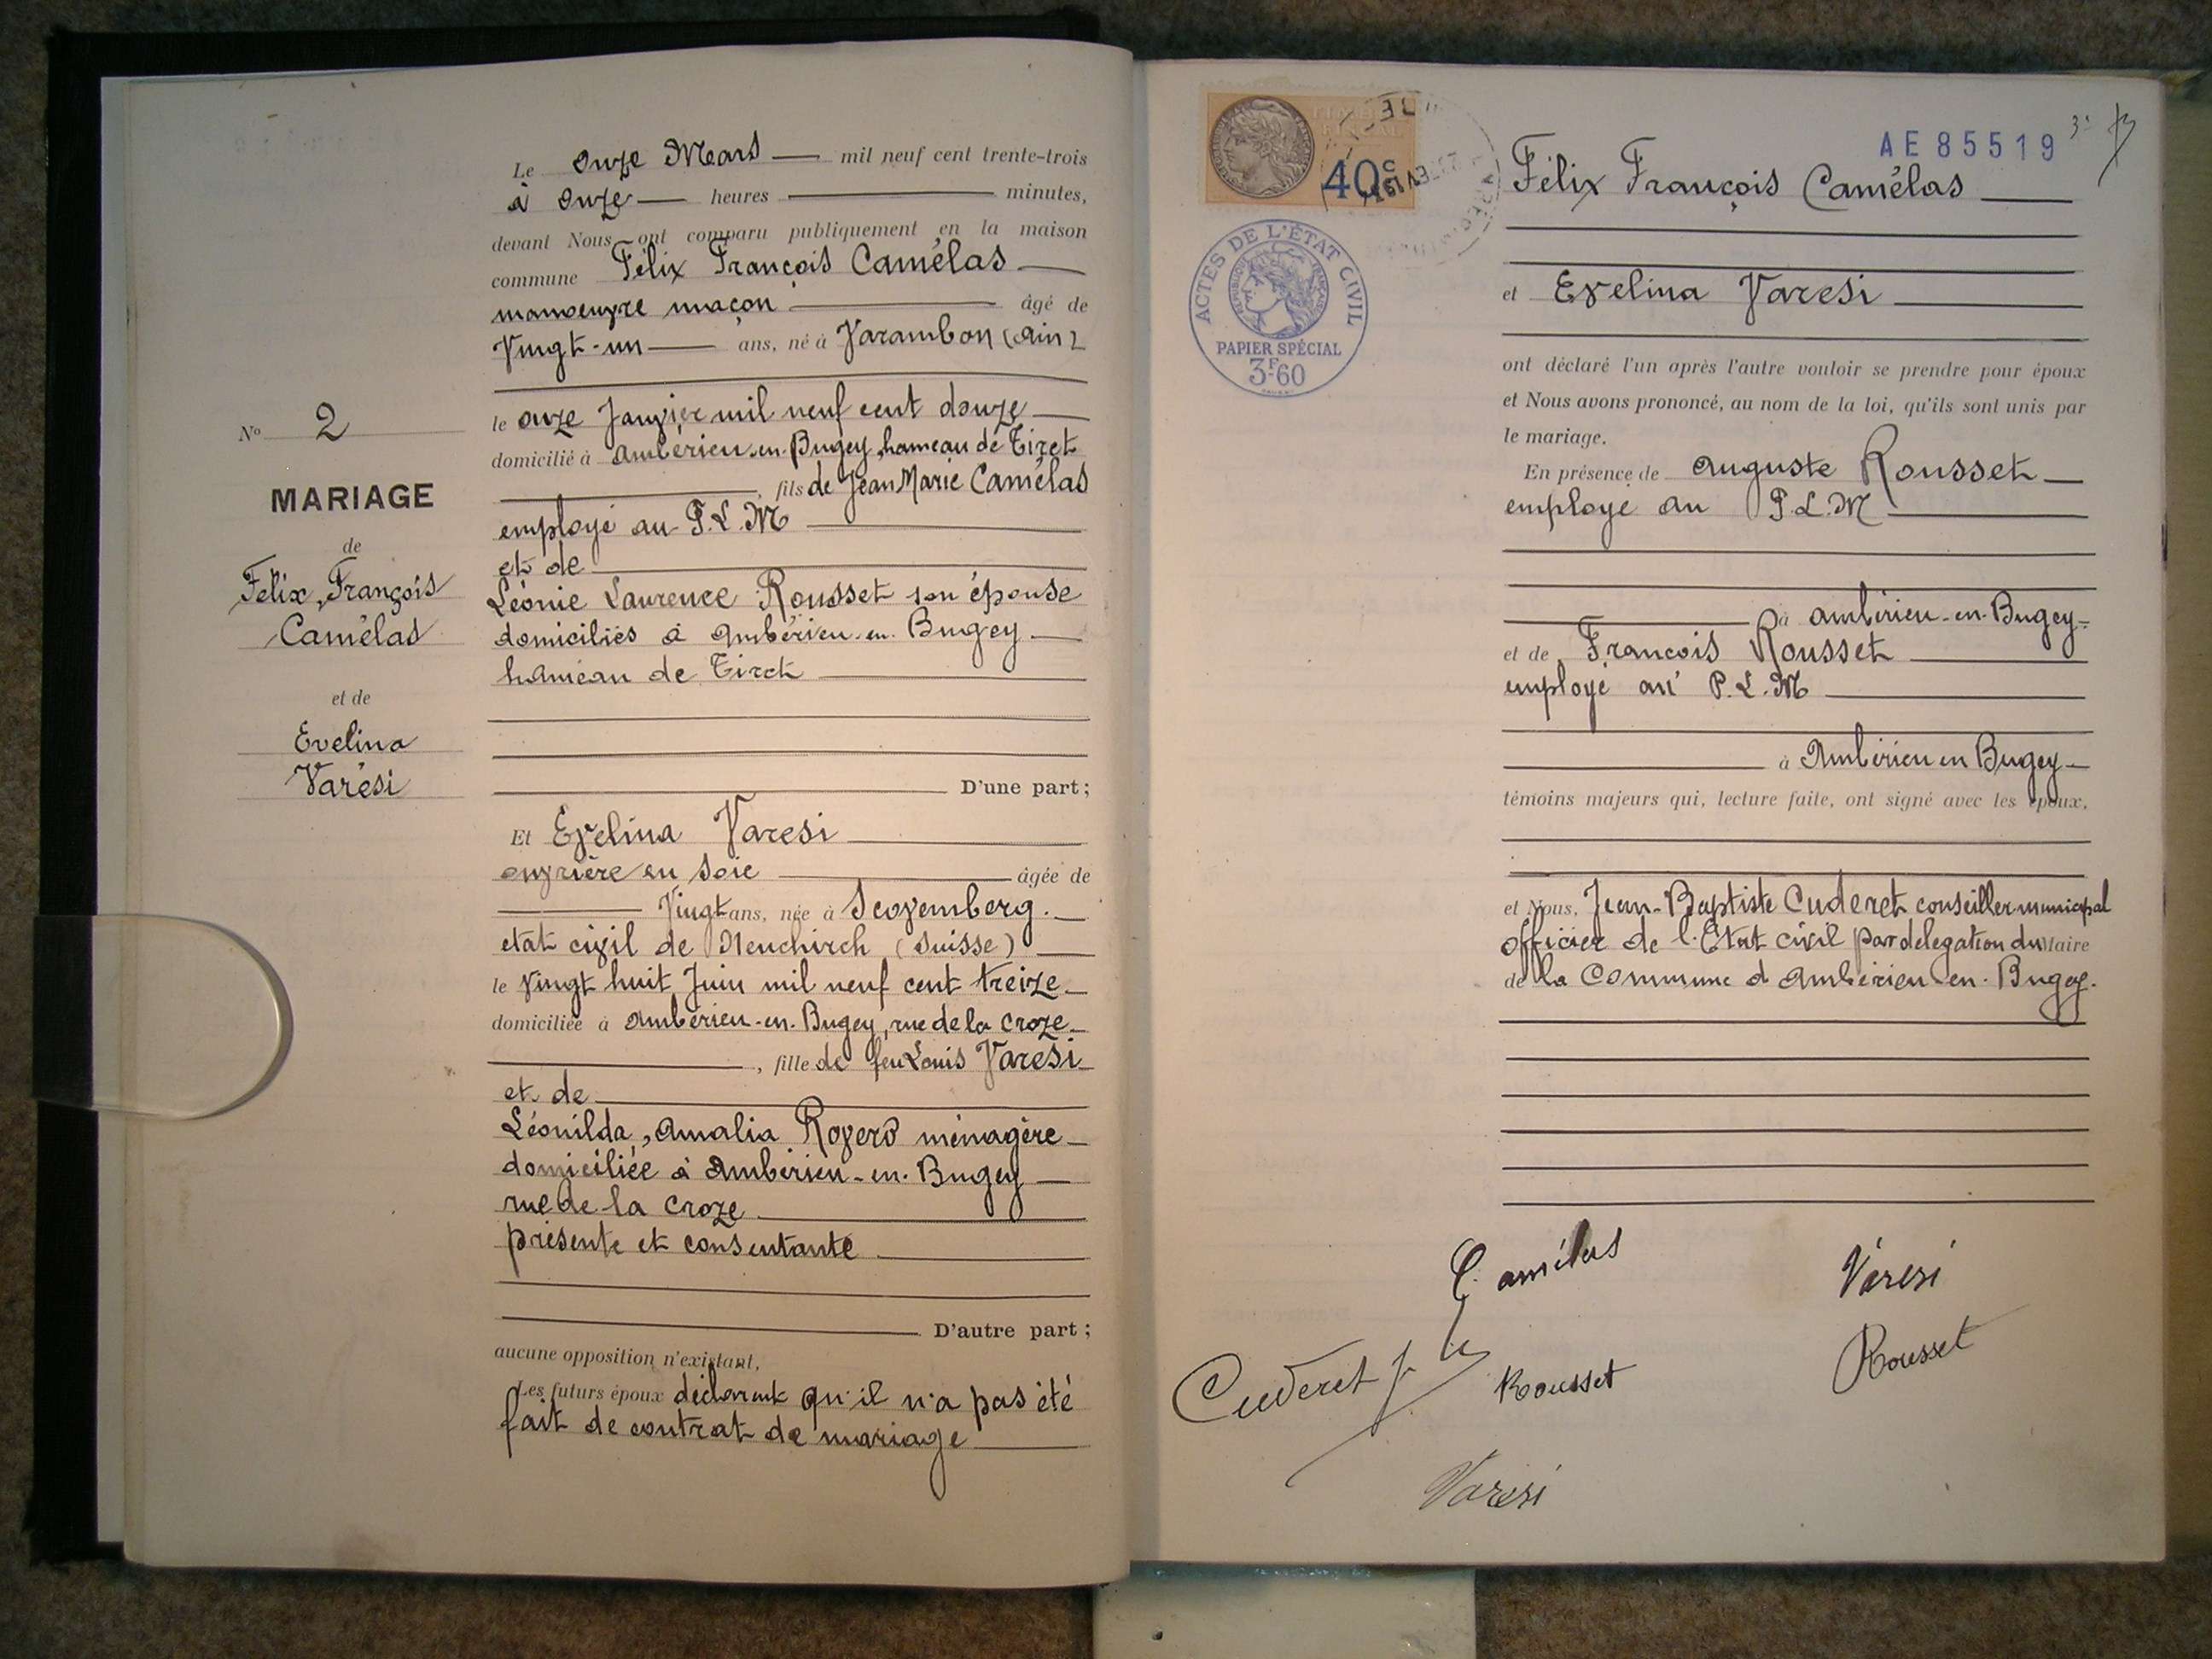 Le onze Mars mil neuf cent trente-trois
à onze heures minutes,
devant Nous ont comparu publiquement en la maison
commune Félix François Camélas
manoeuvre maçon âgé de
Vingt-un ans, né à Varambon (Ain)
le onze Janvier mil neuf cent douze
domicilié à Ambérieu-en-Bugey, hameau de Tiret
, fils de Jean Marie Camélas
employé au P.L.M
et de
Léonie Laurence Rousset son épouse
domiciliés à Ambérieu-en-Bugey
hameau de Tiret
D'une part;
No 2
MARIAGE
de
Félix, François
Camélas
et de
Evelina
Varési
Et Evelina Varesi
ouvrière en soie âgée de
Vingt ans, née à Scovemberg.
etat civil de Neuchirch (Suisse)
le Vingt huit Juin mil neuf cent treize
domiciliée à Ambérieu-en-Bugey, rue de la Croze
, fille de feu Louis Varesi
et de
Léonilda, Amalia Rovero ménagère
domiciliée à Ambérieu-en-Bugey
rue de la Croze
présente et consentante
D'autre part;
aucune opposition n'existant,
Les futurs époux déclarent qu'il n'a pas été
fait de contrat de mariage
40c
AE 85519
ACTES DE L'ÉTAT CIVIL
RÉPUBLIQUE FRANÇAISE
PAPIER SPÉCIAL
3F60
Félix François Camélas
et Evelina Varesi
ont déclaré l'un après l'autre vouloir se prendre pour époux
et Nous avons prononcé, au nom de la loi, qu'ils sont unis par
le mariage.
En présence de Auguste Rousset
employé au P.L.M
à Ambérieu-en-Bugey
et de François Rousset
employé au P.L.M
à Ambérieu en Bugey
témoins majeurs qui, lecture faite, ont signé avec les époux,
et Nous, Jean-Baptiste Cuderet conseiller municipal
officier de l'Etat civil par delegation du Maire
de la Commune d'Ambérieu-en-Bugey.
Camélas
Varesi
Cuderet J
Rousset
Rousset
Varesi